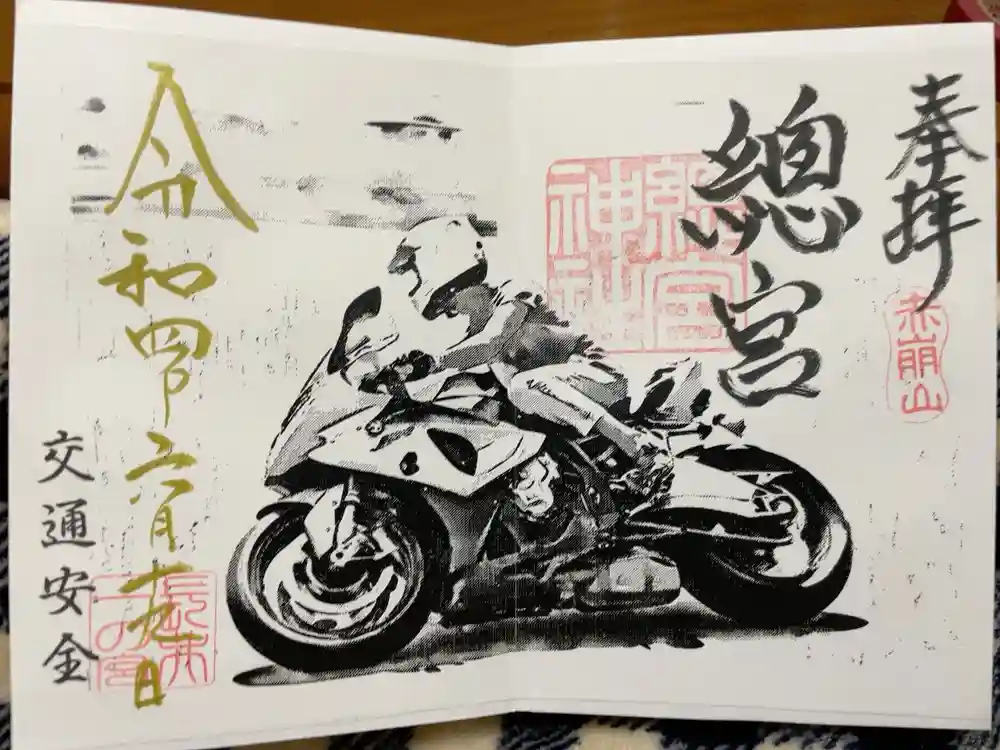 奉拝
赤崩山
總宮
總宮
神社
令和四年六月十九日
交通安全
一の宮